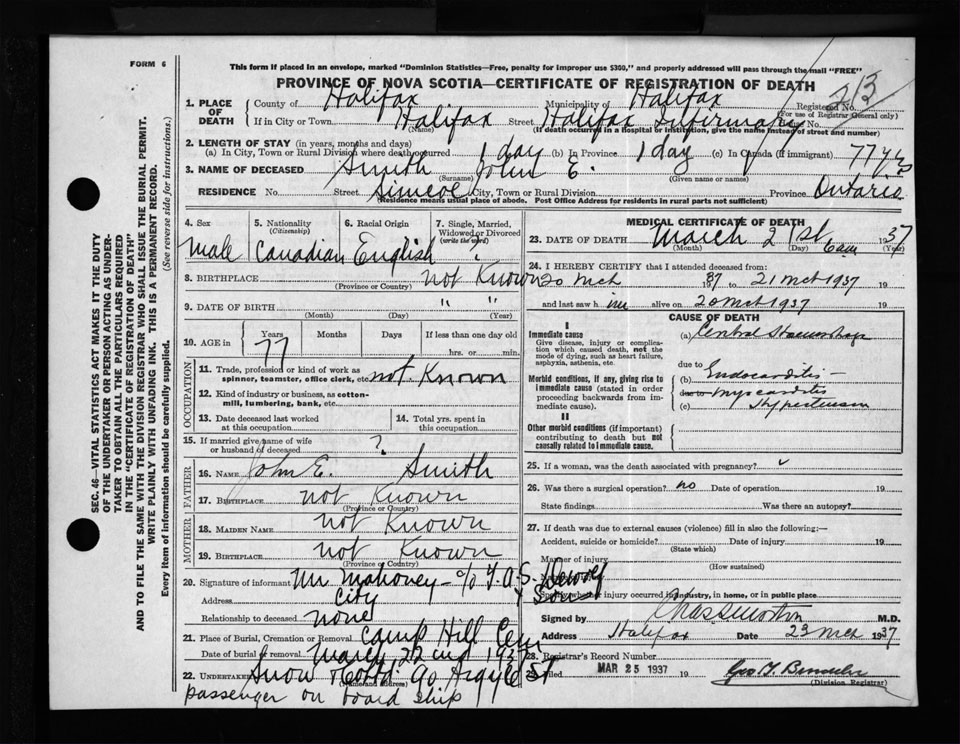 FORM 6
This form if placed in an envelope, marked "Dominion Statistics—Free, penalty for improper use $300," and properly addressed will pass through the mail "FREE"
PROVINCE OF NOVA SCOTIA—CERTIFICATE OF REGISTRATION OF DEATH
SEC. 46—VITAL STATISTICS ACT MAKES IT THE DUTY
OF THE UNDERTAKER OR PERSON ACTING AS UNDER-
TAKER TO OBTAIN ALL THE PARTICULARS REQUIRED
IN THE "CERTIFICATE OF REGISTRATION OF DEATH"
AND TO FILE THE SAME WITH THE DIVISION REGISTRAR WHO SHALL ISSUE THE BURIAL PERMIT.
WRITE PLAINLY WITH UNFADING INK. THIS IS A PERMANENT RECORD.
Every item of information should be carefully supplied. (See reverse side for instructions.)
1. PLACE OF DEATH County of Halifax Municipality of Halifax Registered No. 213
(For use of Registrar General only)
If in City or Town Halifax Street Halifax Infirmary No.
(Name) (If death occurred in a hospital or institution, give the name instead of street and number)
2. LENGTH OF STAY (in years, months and days)
(a) In City, Town or Rural Division where death occurred 1 day (b) In Province 1 day (c) In Canada (if immigrant) 77 yrs
3. NAME OF DECEASED Smith John E.
(Surname) (Given name or names)
RESIDENCE No. Street Simcoe City, Town or Rural Division Province Ontario
(Residence means usual place of abode. Post Office Address for residents in rural parts not sufficient)
4. Sex Male
5. Nationality (Citizenship) Canadian
6. Racial Origin English
7. Single, Married, Widowed or Divorced (write the word) ?
8. BIRTHPLACE not Known
(Province or Country)
9. DATE OF BIRTH " "
(Month) (Day) (Year)
10. AGE in Years 77 Months Days If less than one day old
hrs. or min.
OCCUPATION
11. Trade, profession or kind of work as
spinner, teamster, office clerk, etc. not Known
12. Kind of industry or business, as cotton-
mill, lumbering, bank, etc.
13. Date deceased last worked
at this occupation
14. Total yrs. spent in
this occupation
15. If married give name of wife
or husband of deceased ?
FATHER
16. NAME John E. Smith
17. BIRTHPLACE not Known
(Province or Country)
MOTHER
18. MAIDEN NAME not Known
19. BIRTHPLACE not Known
(Province or Country)
20. Signature of informant Mr Mahoney - c/o
Address City
Relationship to deceased none
21. Place of Burial, Cremation or Removal Camp Hill Cem
Date of burial or removal March 22nd 1937
22. UNDERTAKER Snow & Co Ltd 90 Argyle St
(Name and address)
passenger on board ship
MEDICAL CERTIFICATE OF DEATH
23. DATE OF DEATH March 21st 6 am 1937
(Month) (Day) (Year)
24. I HEREBY CERTIFY that I attended deceased from:
20 Mch 1937 to 21 Mch 1937 19
and last saw h im alive on 20 Mch 1937 19
CAUSE OF DEATH
I
Immediate cause
Give disease, injury or complica-
tion which caused death, not the
mode of dying, such as heart failure,
asphyxia, asthenia, etc.
(a)
due to
Morbid conditions, if any, giving rise to
immediate cause (stated in order
proceeding backwards from im-
mediate cause).
(b) Endocarditis -
due to Myocarditis
(c) Hypertension
II
Other morbid conditions (if important)
contributing to death but not
causally related to immediate cause.
25. If a woman, was the death associated with pregnancy?
26. Was there a surgical operation? no Date of operation 19
State findings Was there an autopsy?
27. If death was due to external causes (violence) fill in also the following:—
Accident, suicide or homicide? Date of injury 19
(State which)
Manner of injury
(How sustained)
Specify whether injury occurred in industry, in home, or in public place
Signed by M.D.
Address Halifax Date 23 Mch 1937
28. Registrar's Record Number
Filed MAR 25 1937 19
(Division Registrar)